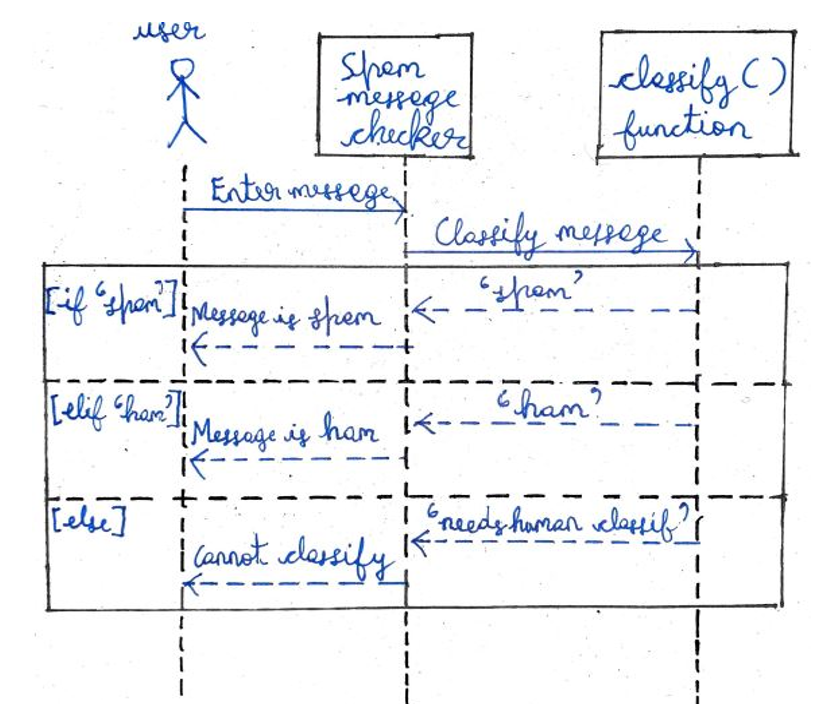 user
Spam
message
checker
classify()
function
Enter message
Classify message
[if 'spam']
'spam'
Message is spam
[elif 'ham']
'ham'
Message is ham
[else]
'needs human classif'
Cannot classify